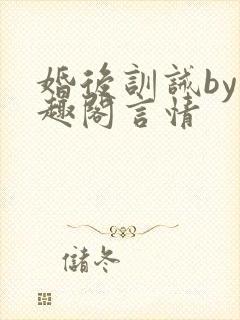 婚後訓誡by
趣閣言情
儲冬